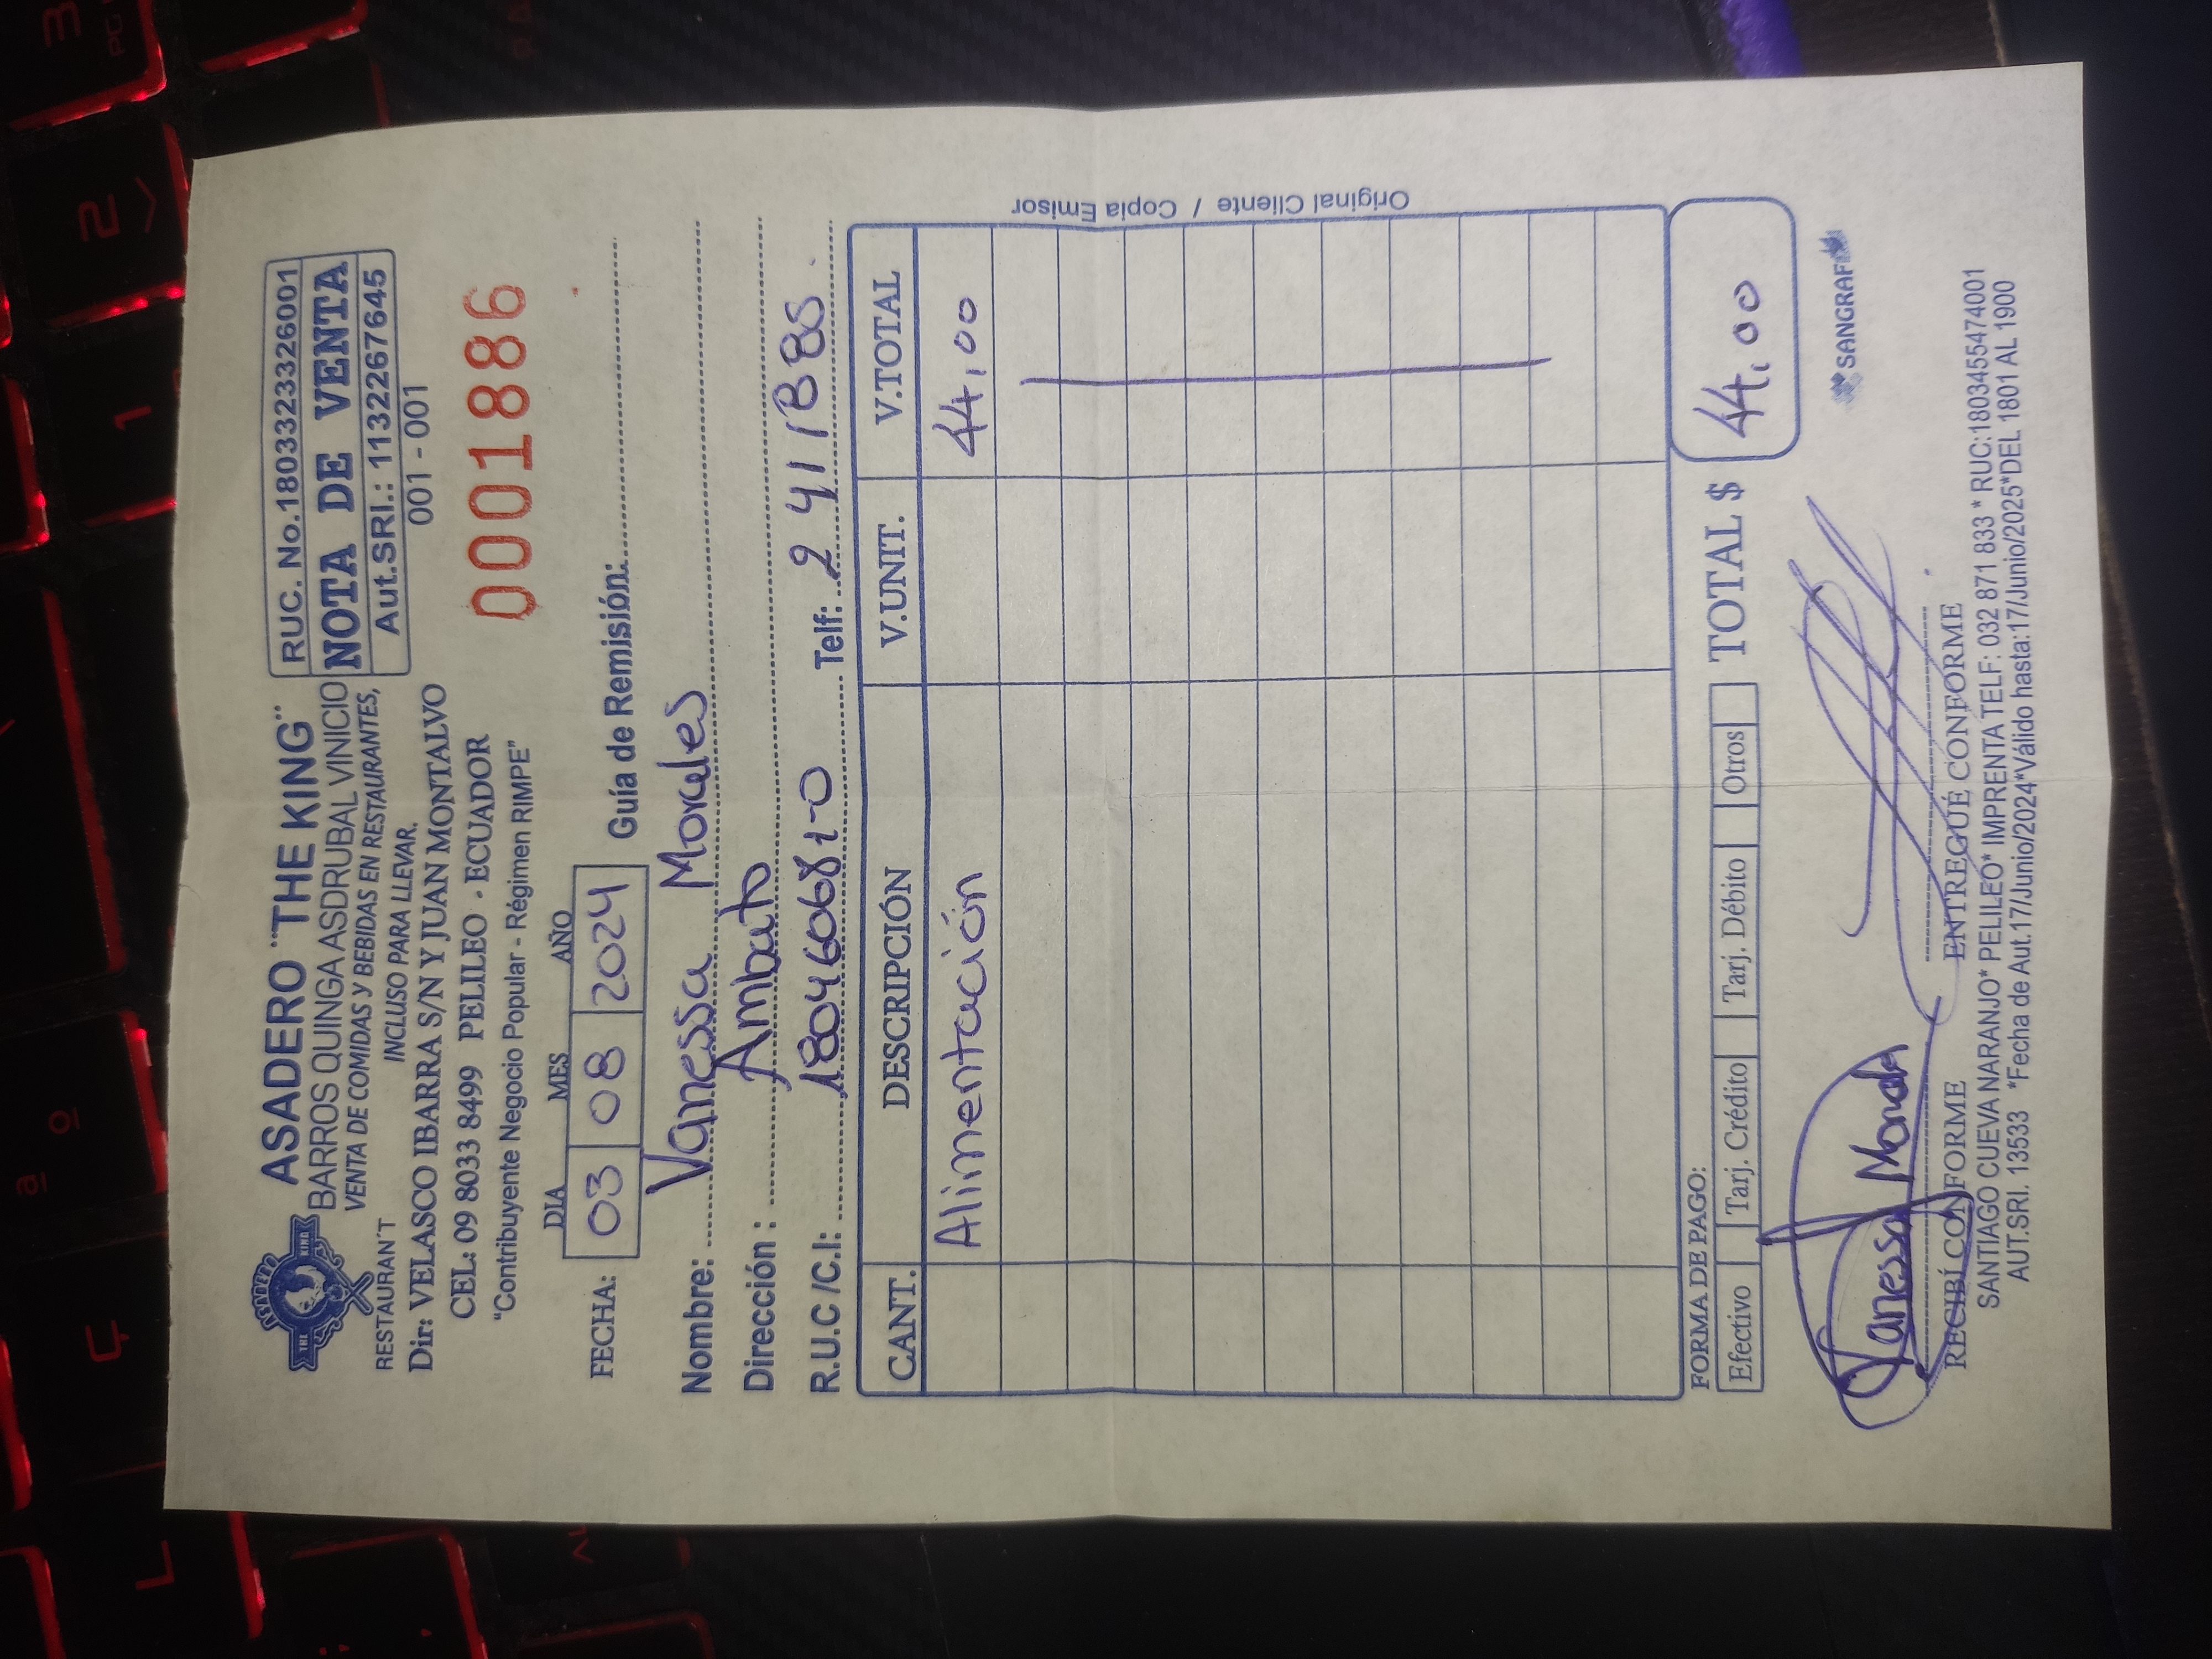 ASADERO
THE KING
RESTAURAN´T
ASADERO ¨THE KING¨
BARROS QUINGA ASDRUBAL VINICIO
VENTA DE COMIDAS Y BEBIDAS EN RESTAURANTES,
INCLUSO PARA LLEVAR.
Dir: VELASCO IBARRA S/N Y JUAN MONTALVO
CEL: 09 8033 8499 PELILEO - ECUADOR
"Contribuyente Negocio Popular - Régimen RIMPE"
RUC. No.1803323326001
NOTA DE VENTA
Aut.SRI.: 1132267645
001 - 001
0001886
DIA MES AÑO
FECHA: 03 08 2024 Guía de Remisión:
Nombre: Vanessa Morales
Dirección : Ambato
R.U.C /C.I: 180460681-0 Telf: 2411885
CANT. DESCRIPCIÓN V.UNIT. V.TOTAL
Alimentación 44,00
Original Cliente / Copia Emisor
FORMA DE PAGO:
Efectivo Tarj. Crédito Tarj. Débito Otros TOTAL $ 44,00
SANGRAF
Vanessa Morales
RECIBÍ CONFORME ENTREGUÉ CONFORME
SANTIAGO CUEVA NARANJO* PELILEO* IMPRENTA TELF: 032 871 833 * RUC:1803455474001
AUT.SRI. 13533 *Fecha de Aut.17/Junio/2024*Válido hasta:17/Junio/2025*DEL 1801 AL 1900
L
Ç
ª
º
1
2
3